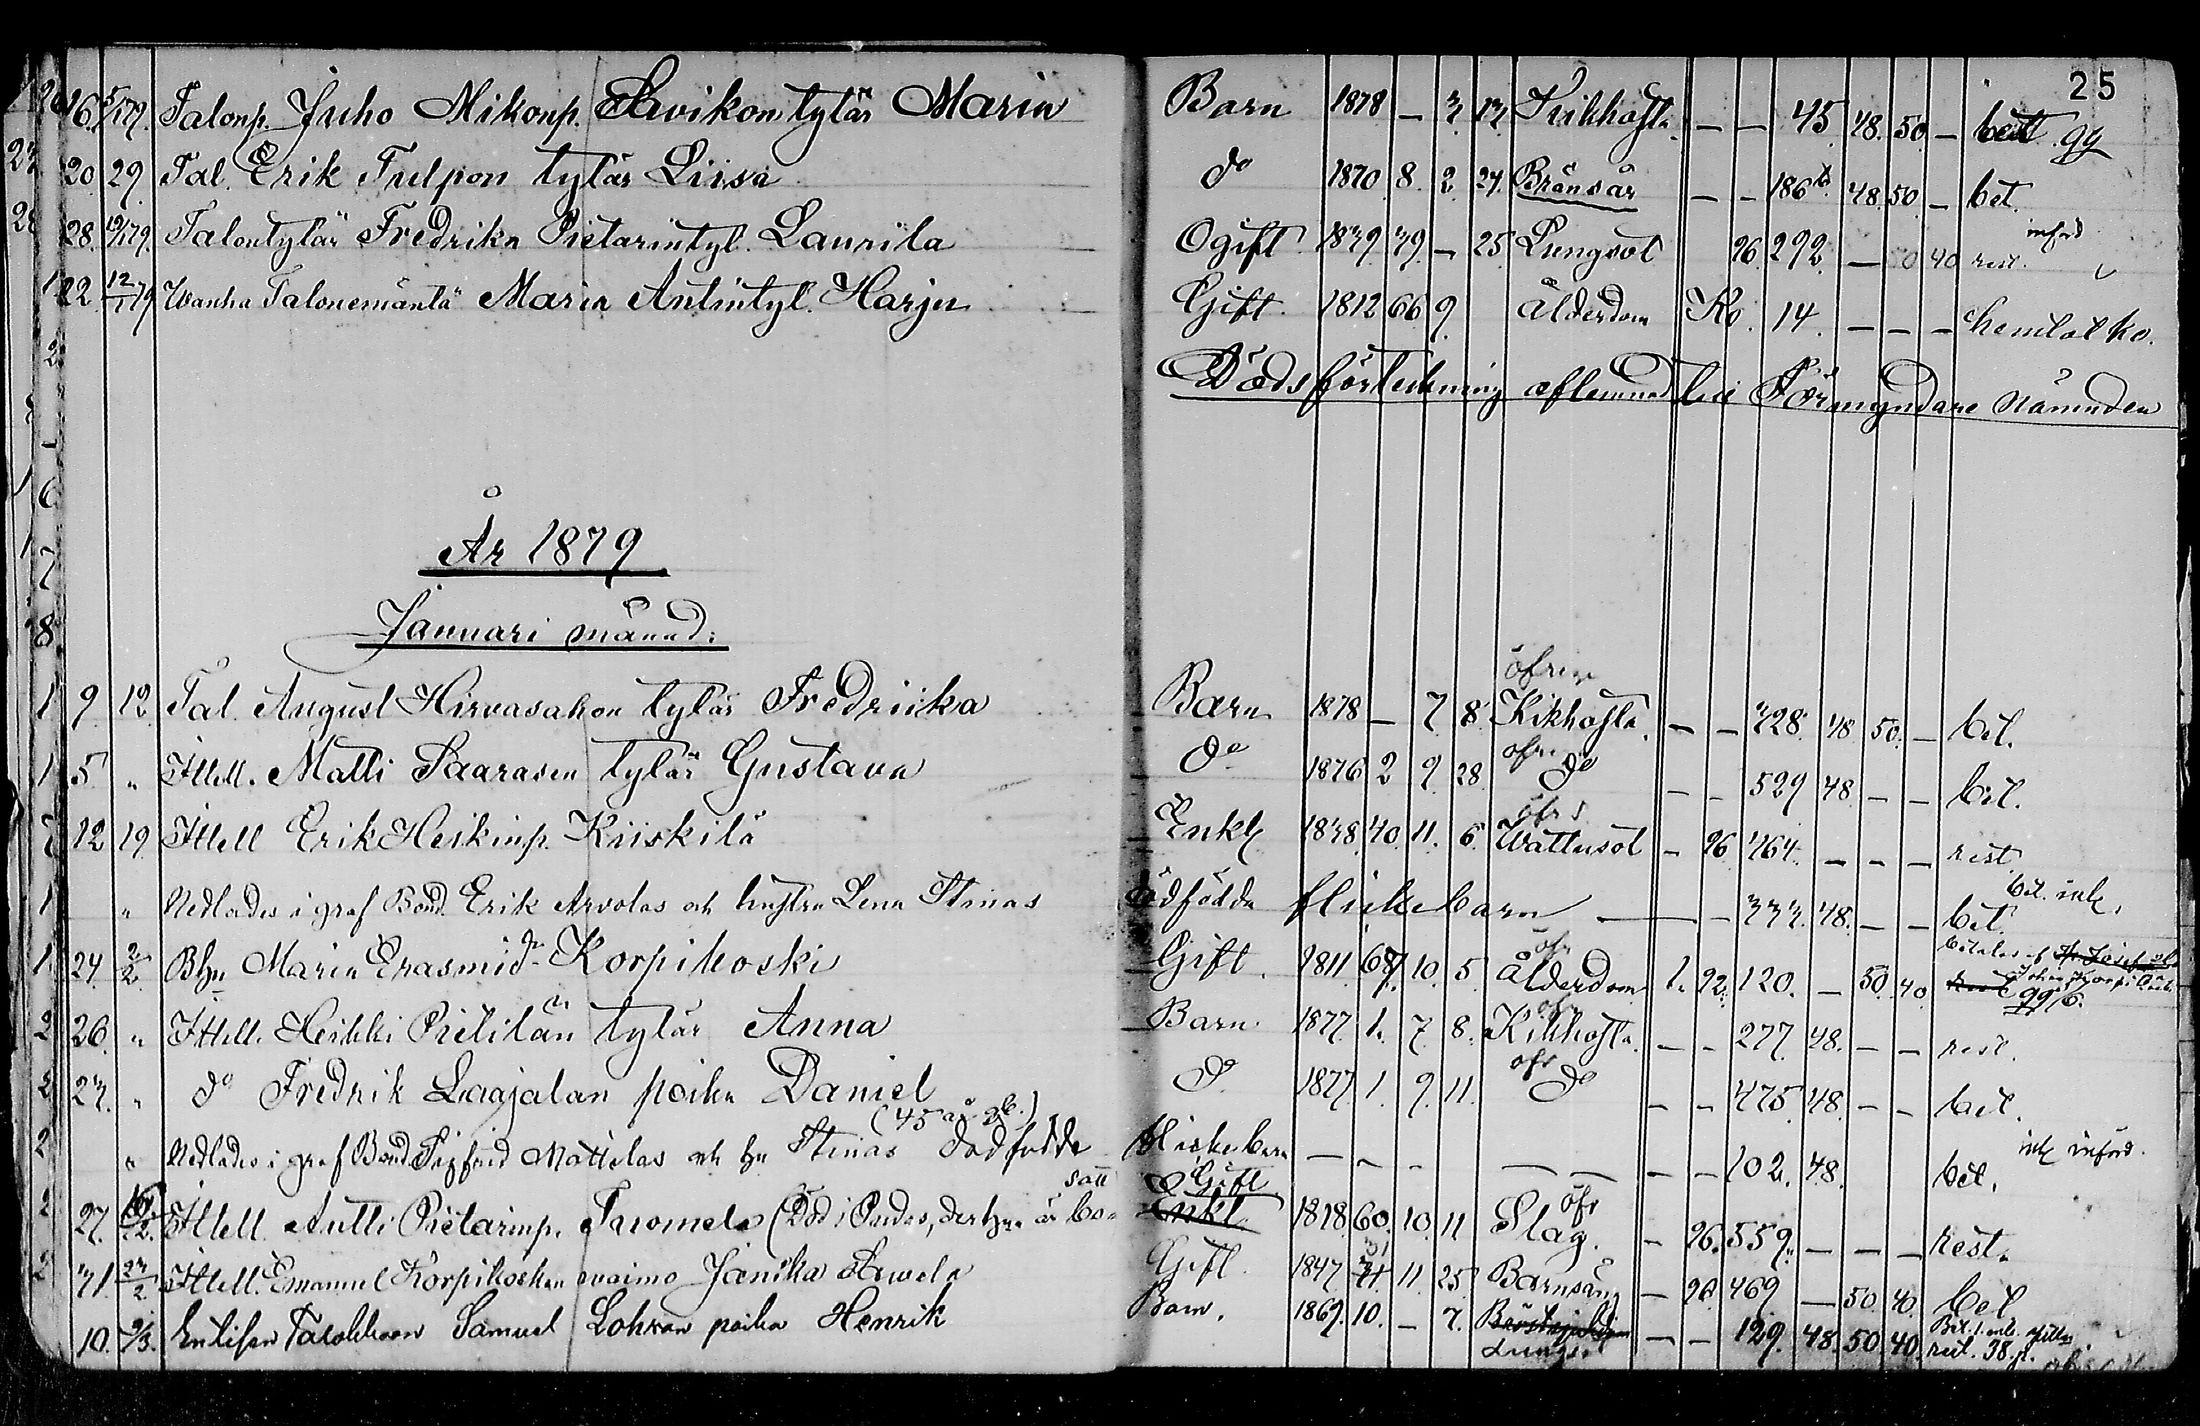 25
16. 5/1 79. Talonp. Juho Mikonp. Savikon tytär Maria Barn 1878 — 3 13 Kikhosta — — 45 48. 50 — bet
20 29 Tal. Erik Fulpon tytär Liisa do 1870 8 2 24. Bränsår — — 186 48. 50 — bet.
28. 12/1 79. Talontytär Fredrika Pietarintyt. Laurila Ogift 1839 39. — 25 Lungsot 96 292 — 50 40 rest. införd
22 12/1 79 Wanha Talonemäntä Maria Antintyt. Harju Gift. 1812 66 9 Ålderdom Ko. 14 — — — hemtat ko.
Dödsförteckning aflemnad till Förmyndare nämnden
År 1879
Januari månad:
9. 12 Tal. August Hirvasahon tytär Fredriika Barn 1878 — 7 8 öfr Kikhosta — — 328 48 50. — bet.
5 " Ittell. Matti Saarasen tytär Gustava do 1876 2 9 28 öfr do — — 529 48 — — bet.
12 19. Ittell Erik Heikinp. Kiiskilä Enkl 1838 40. 11. 6. öfr Wattusot — 96 364. — — — rest.
" Nedlades i graf Bond. Erik Arvolas och hustru Lena Stinas dödfödda flickebarn — — 333. 48. — — bet. bet. ink.
24 2/2 Bhu Maria Erasmi dr Korpikoski Gift. 1811 67. 10. 5 öfr Ålderdom 1. 92. 120. — 50 40 betalas af Johan Korpikoski
26. " Ittell. Heikki Pietilän tytär Anna Barn 1877. 1. 7. 8. öfr Kikhosta. — — 277. 48. — — rest.
23. " do Fredrik Laajalan poika Daniel do 1877. 1. 9. 11. öfr do — — 375 48. — — bet.
(45 år gl.)
" Nedlades i graf Bond Sigfrid Mattilas och hu Stinas dödfödda flickebarn — — — — — — — 102. 48. bet. ink införd.
27. /2. Ittell. Antti Pietarinp. Tuomela (Död i Pudas, der hn är bosatt Gift Enkl. 1818 60. 10. 11 öfr Slag. — 96. 559. — — — rest.
31. 23/2 Ittell. Emanuel Korpikosken vaimo Janika Arwela Gift. 1847 31 11 25 Barnsäng — 96 469 — 50 40. bet
10. 9/3. Entisen Talokkaan Samuel Lohvan poika Henrik Barn. 1869. 10. — 7. Lungs. — — 129. 48. 50 40. Bet. 1. mk. rest. 38 p.